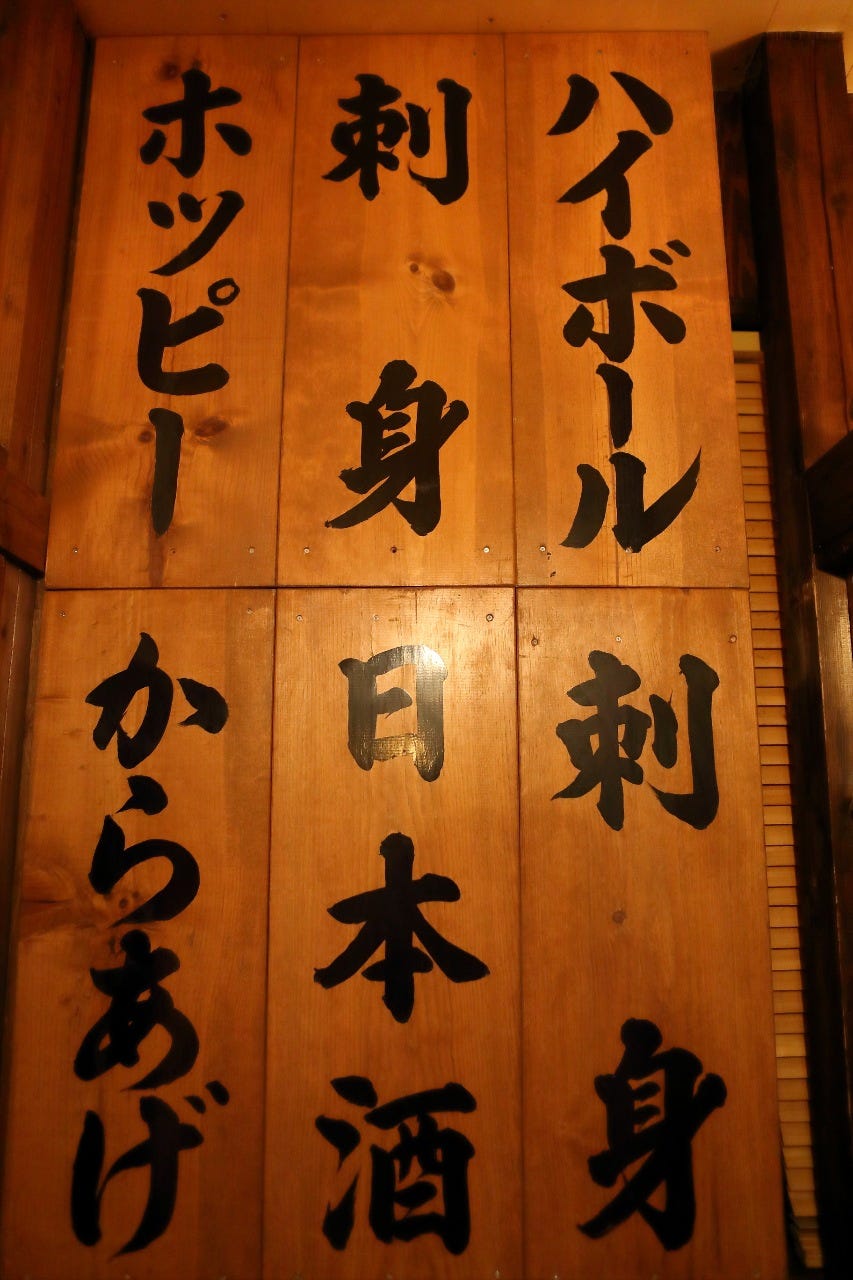 ハイボール
刺身
ホッピー
刺身
日本酒
からあげ